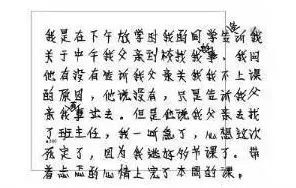 我是在下午放学时我的同学告诉我
关于中午我父亲到校找我事。我问
他有没有告诉我父亲关我不上课
的原因，他说没有，只是告诉我父
亲我出去。但是他说我父亲去找
了班主任，我一听急了，心想这次
死定了，因为我逃好多节课了。带
着忐忑的心情上完了本周的课。